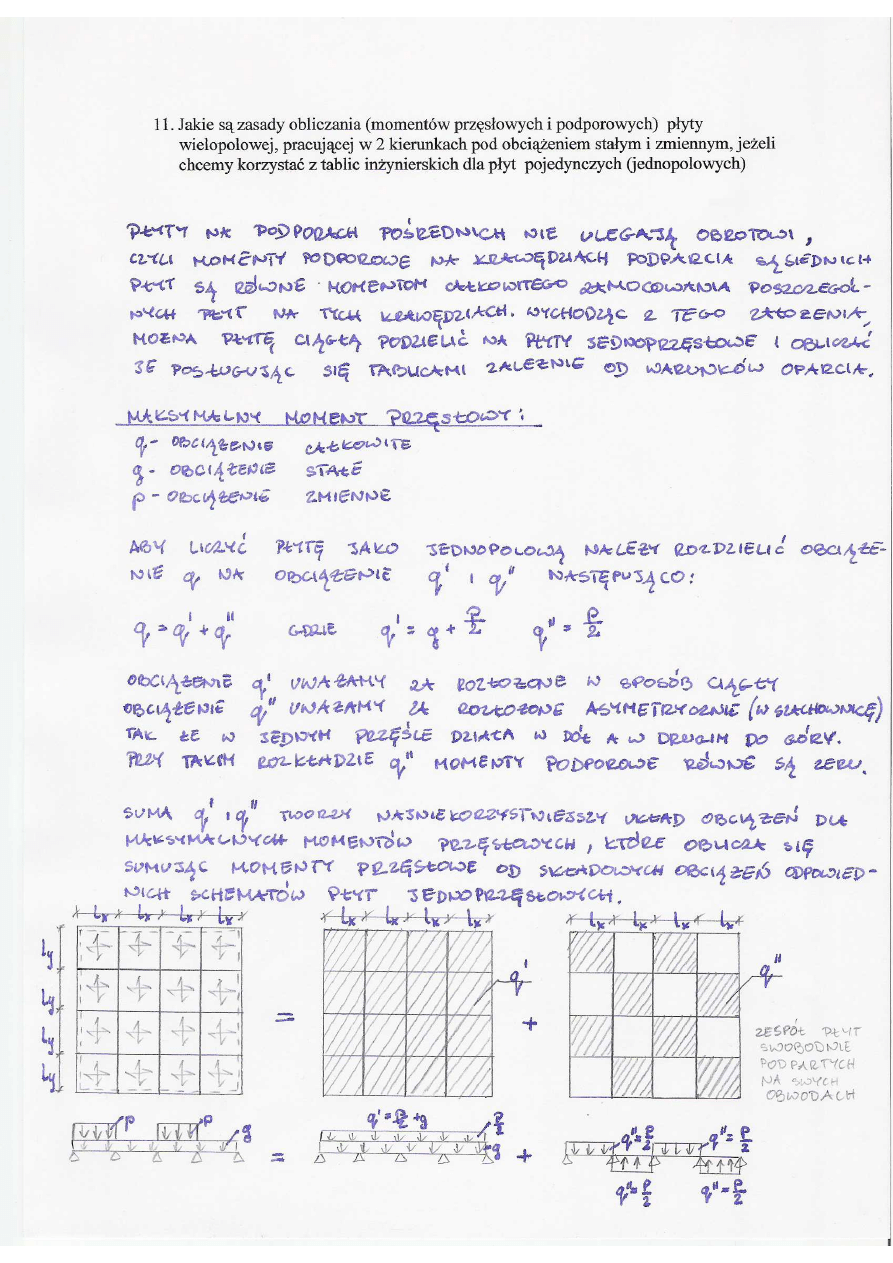 11. Jakie są zasady obliczania (momentów przęsłowych i podporowych) płyty
wielopolowej, pracującej w 2 kierunkach pod obciążeniem stałym i zmiennym, jeżeli
chcemy korzystać z tablic inżynierskich dla płyt pojedynczych (jednopolowych)
PŁYTY NA PODPORACH POŚREDNICH NIE ULEGAJĄ OBROTOWI,
CZYLI MOMENTY PODPOROWE NA KRAWĘDZIACH PODPARCIA SĄSIEDNICH
PŁYT SĄ RÓWNE MOMENTOM CAŁKOWITEGO ZAMOCOWANIA POSZCZEGÓL-
NYCH PŁYT NA TYCH KRAWĘDZIACH. WYCHODZĄC Z TEGO ZAŁOŻENIA,
MOŻNA PŁYTĘ CIĄGŁĄ PODZIELIĆ NA PŁYTY JEDNOPRZĘSŁOWE I OBLICZAĆ
JE POSŁUGUJĄC SIĘ TABLICAMI ZALEŻNIE OD WARUNKÓW OPARCIA.
MAKSYMALNY MOMENT PRZĘSŁOWY:
q - OBCIĄŻENIE CAŁKOWITE
g - OBCIĄŻENIE STAŁE
p - OBCIĄŻENIE ZMIENNE
ABY LICZYĆ PŁYTĘ JAKO JEDNOPOLOWĄ NALEŻY ROZDZIELIĆ OBCIĄŻE-
NIE q NA OBCIĄŻENIE q' I q" NASTĘPUJĄCO:
q = q' + q" GDZIE q' = g + p/2 q" = p/2
OBCIĄŻENIE q' UWAŻAMY ZA ROZŁOŻONE W SPOSÓB CIĄGŁY
OBCIĄŻENIE q" UWAŻAMY ZA ROZŁOŻONE ASYMETRYCZNIE (W SZACHOWNICĘ)
TAK ŻE W JEDNYM PRZĘŚLE DZIAŁA W DÓŁ A W DRUGIM DO GÓRY.
PRZY TAKIM ROZKŁADZIE q" MOMENTY PODPOROWE RÓWNE SĄ ZERU.
SUMA q' I q" TWORZY NAJNIEKORZYSTNIEJSZY UKŁAD OBCIĄŻEŃ DLA
MAKSYMALNYCH MOMENTÓW PRZĘSŁOWYCH, KTÓRE OBLICZA SIĘ
SUMUJĄC MOMENTY PRZĘSŁOWE OD SKŁADOWYCH OBCIĄŻEŃ ODPOWIED-
NICH SCHEMATÓW PŁYT JEDNOPRZĘSŁOWYCH.
lx lx lx lx lx lx lx lx lx lx lx lx
ly
ly
ly
ly
=
q'
+
q"
ZESPÓŁ PŁYT
SWOBODNIE
PODPARTYCH
NA SWYCH
OBWODACH
p p g
=
q' = p/2 + g
p/2
g
+
q" = p/2 q" = p/2
q" = p/2 q" = p/2